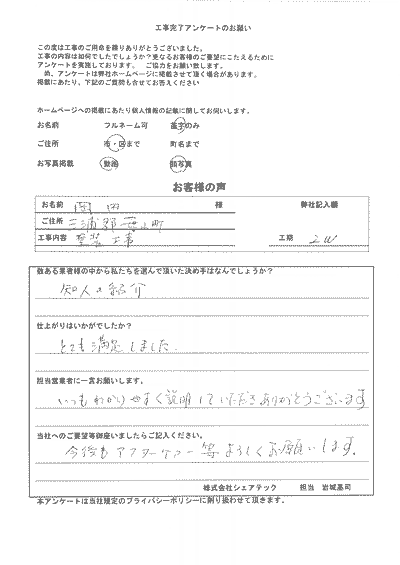 工事完了アンケートのお願い
この度は工事のご用命を賜りありがとうございました。
工事の内容は如何でしたでしょうか？更なるお客様のご要望にこたえるために
アンケートを実施しております。 ご協力をお願い致します。
め、アンケートは弊社ホームページに掲載させて頂く場合があります。
掲載にあたり、下記のご質問も合せてお答えください
ホームページへの掲載にあたり個人情報の記載に関してお伺いします。
お名前 フルネーム可 苗字のみ
ご住所 市・区まで 町名まで
お写真掲載 動画 顔写真
お客様の声
お名前 様 弊社記入欄
ご住所 三浦郡葉山町
工事内容 塗装工事 工期 2W
数ある業者様の中から私たちを選んで頂いた決め手はなんでしょうか？
知人の紹介
仕上がりはいかがでしたか？
とても満足しました。
担当営業者に一言お願いします。
いつもわかりやすく説明していただきありがとうございます
当社へのご要望等御座いましたらご記入ください。
今後もアフターケアー等よろしくお願いします。
株式会社シェアテック 担当 岩城基司
本アンケートは当社規定のプライバシーポリシーに則り扱わせて頂きます。